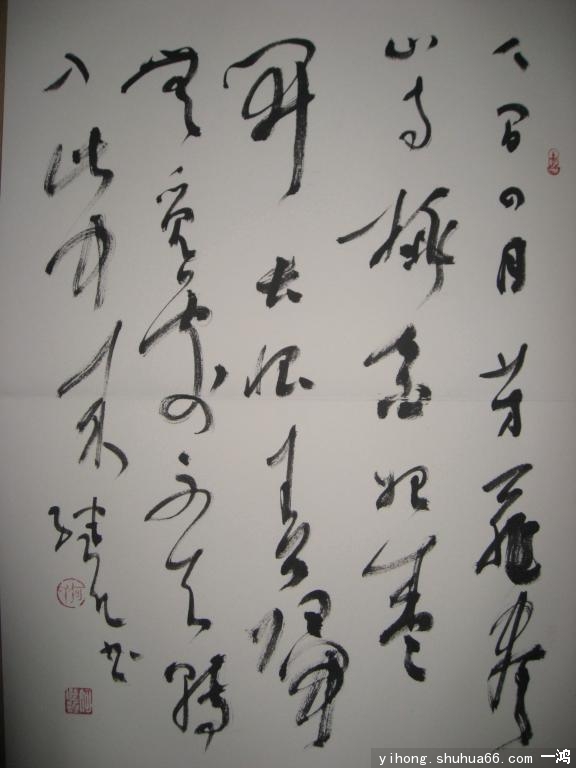 人間四月芳菲盡
山寺桃花始盛
開長恨春歸
無覓處不知轉
入此中來 書
yihong.shuhua66.com 一鸿